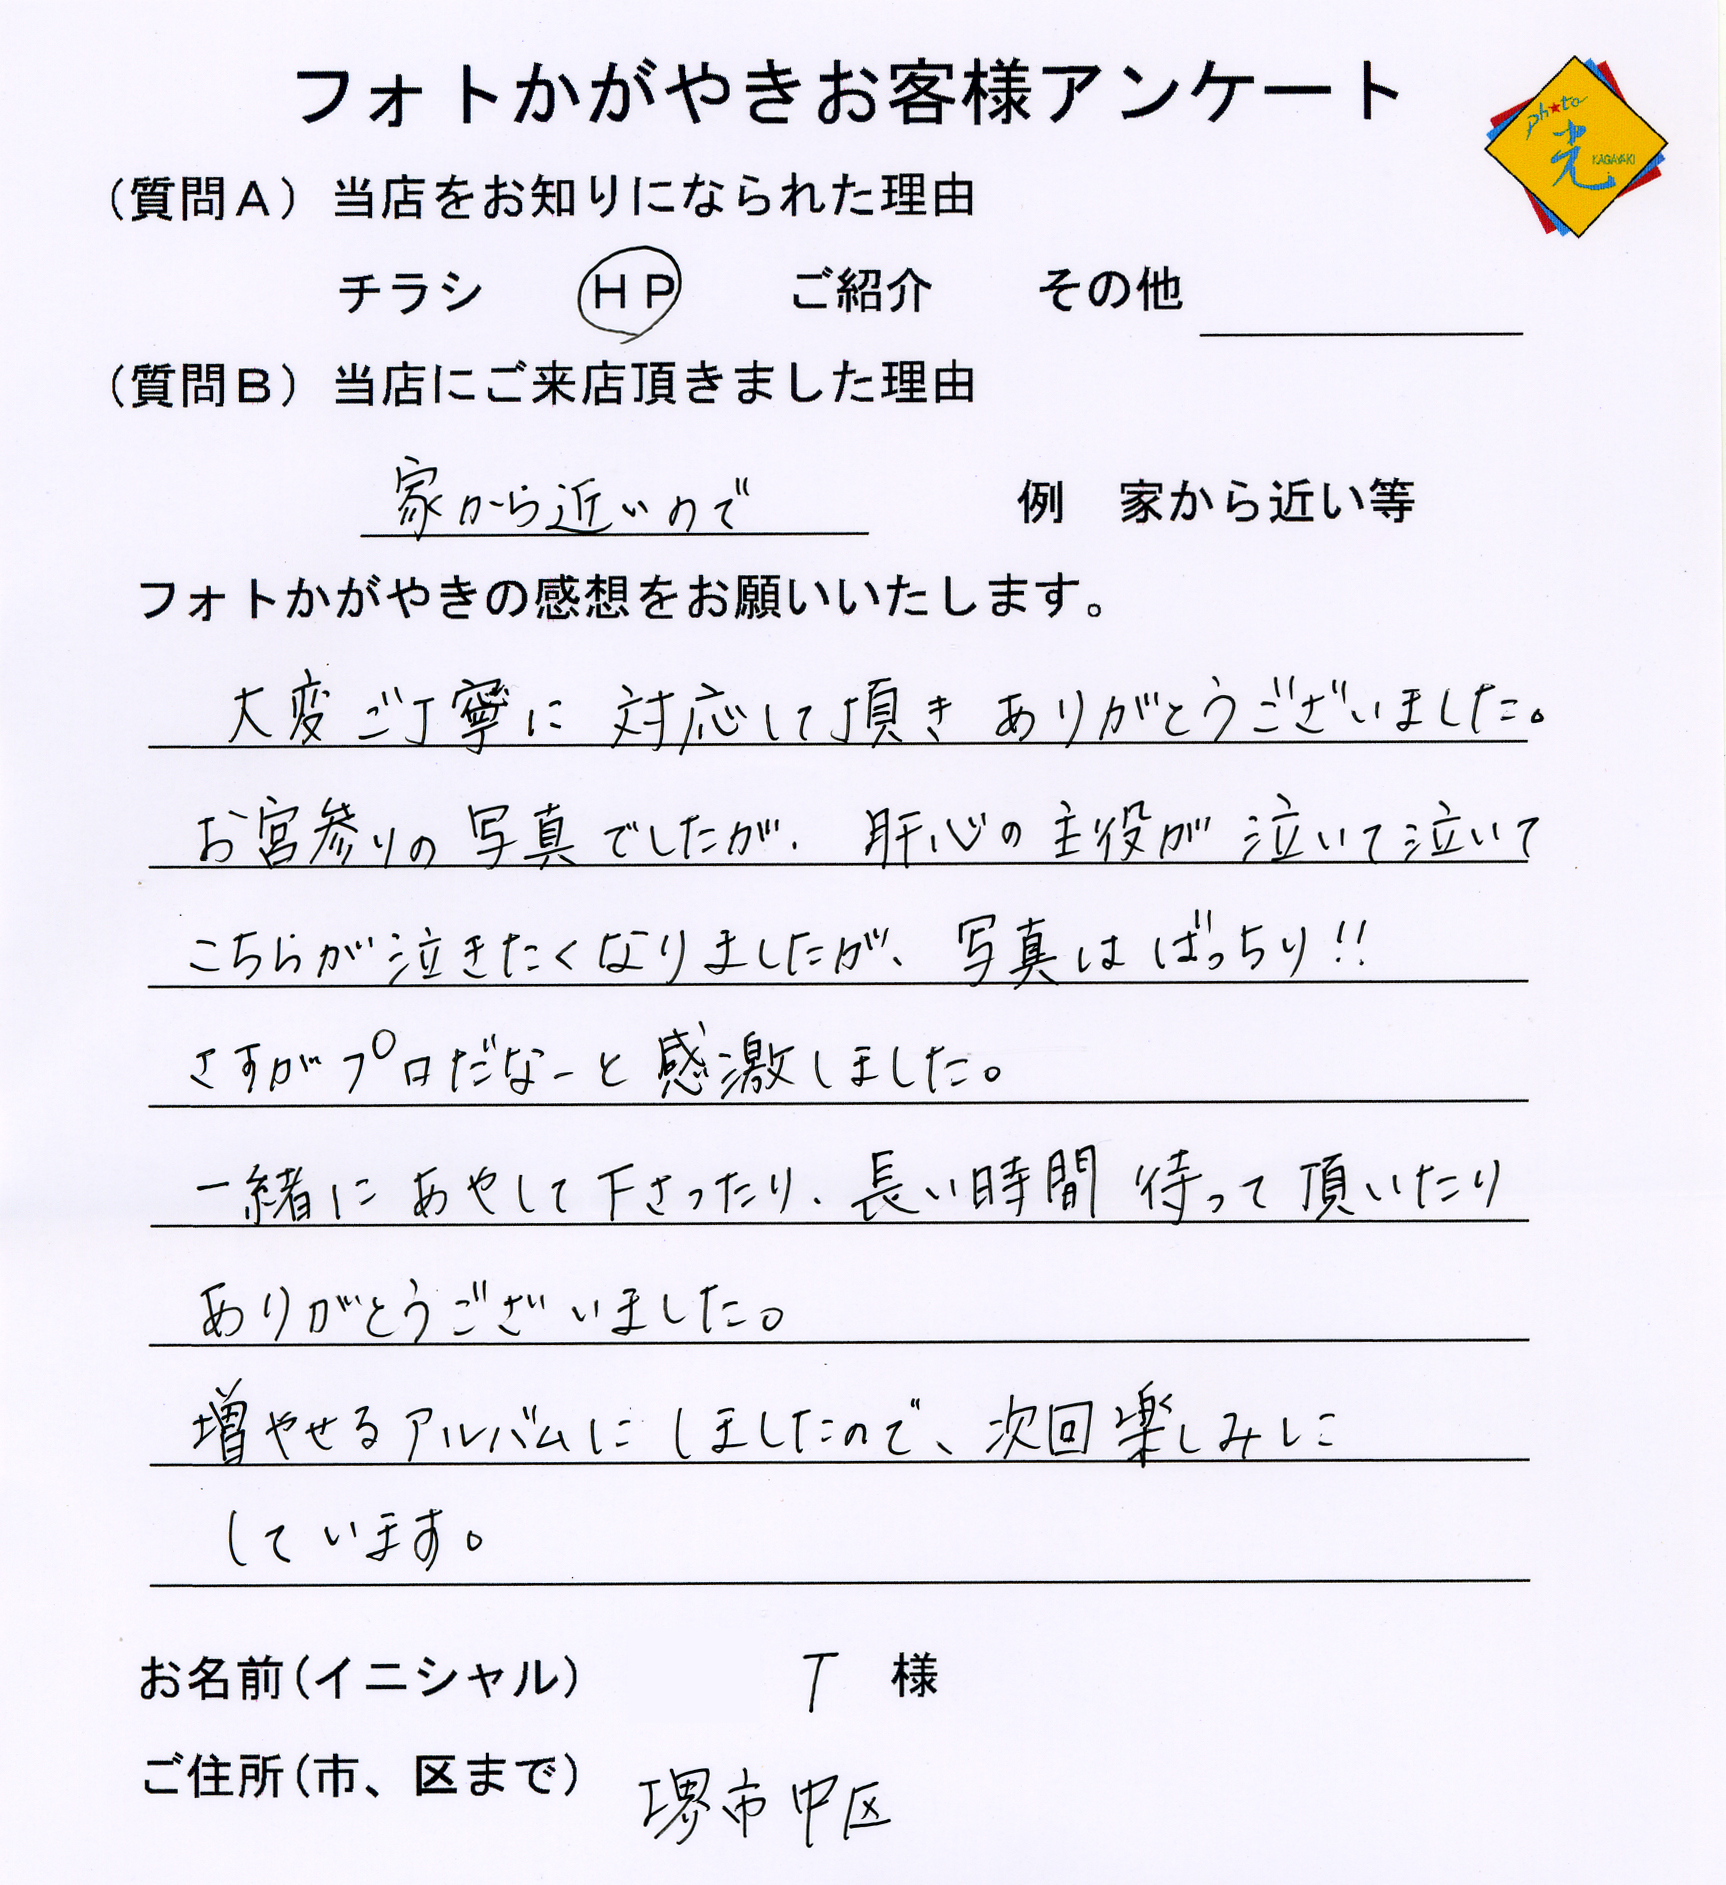 フォトかがやきお客様アンケート
photo
光
KAGAYAKI
（質問A）当店をお知りになられた理由
チラシ　HP　ご紹介　その他
（質問B）当店にご来店頂きました理由
家から近いので　例　家から近い等
フォトかがやきの感想をお願いいたします。
大変ご丁寧に対応して頂きありがとうございました。
お宮参りの写真でしたが、肝心の主役が泣いて泣いて
こちらが泣きたくなりましたが、写真はばっちり!!
さすがプロだなーと感激しました。
一緒にあやして下さったり、長い時間待って頂いたり
ありがとうございました。
増やせるアルバムにしましたので、次回楽しみに
しています。
お名前(イニシャル)　T　様
ご住所(市、区まで)　堺市中区